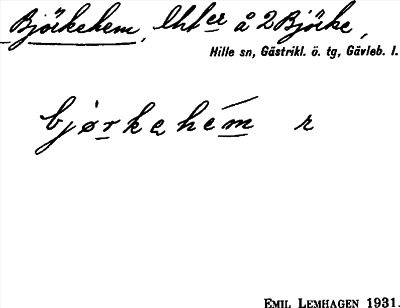 Björkehem, lht er å 2 Björke,
Hille sn, Gästrikl. ö. tg, Gävleb. l.
bjørkehém r
EMIL LEMHAGEN 1931.